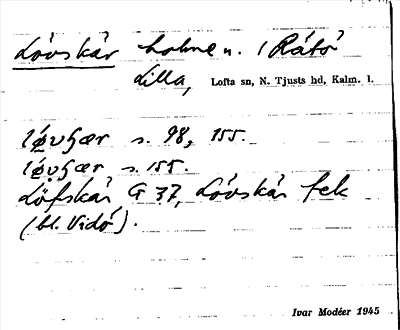 Lövskär holme n. i Rätö
Lilla, Lofta sn, N. Tjusts hd, Kalm. l.
s. 98, 155.
s. 155.
Löfskär G 37, Lövskär fek
(bl. Vidö).
Ivar Modéer 1945